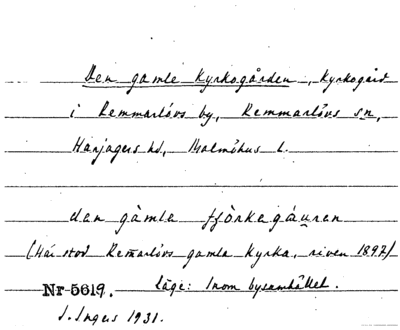 Den gamle Kyrkogården, Kyrkogård
i Remmarlövs by, Remmarlövs sn,
Harjagers hd, Malmöhus l.
den gàmla fjörkegåuren
(Här stod Remarlövs gamla Kyrka, riven 1897)
Nr 5619. Läge: Inom bysamhället.
I. Ingers 1931.